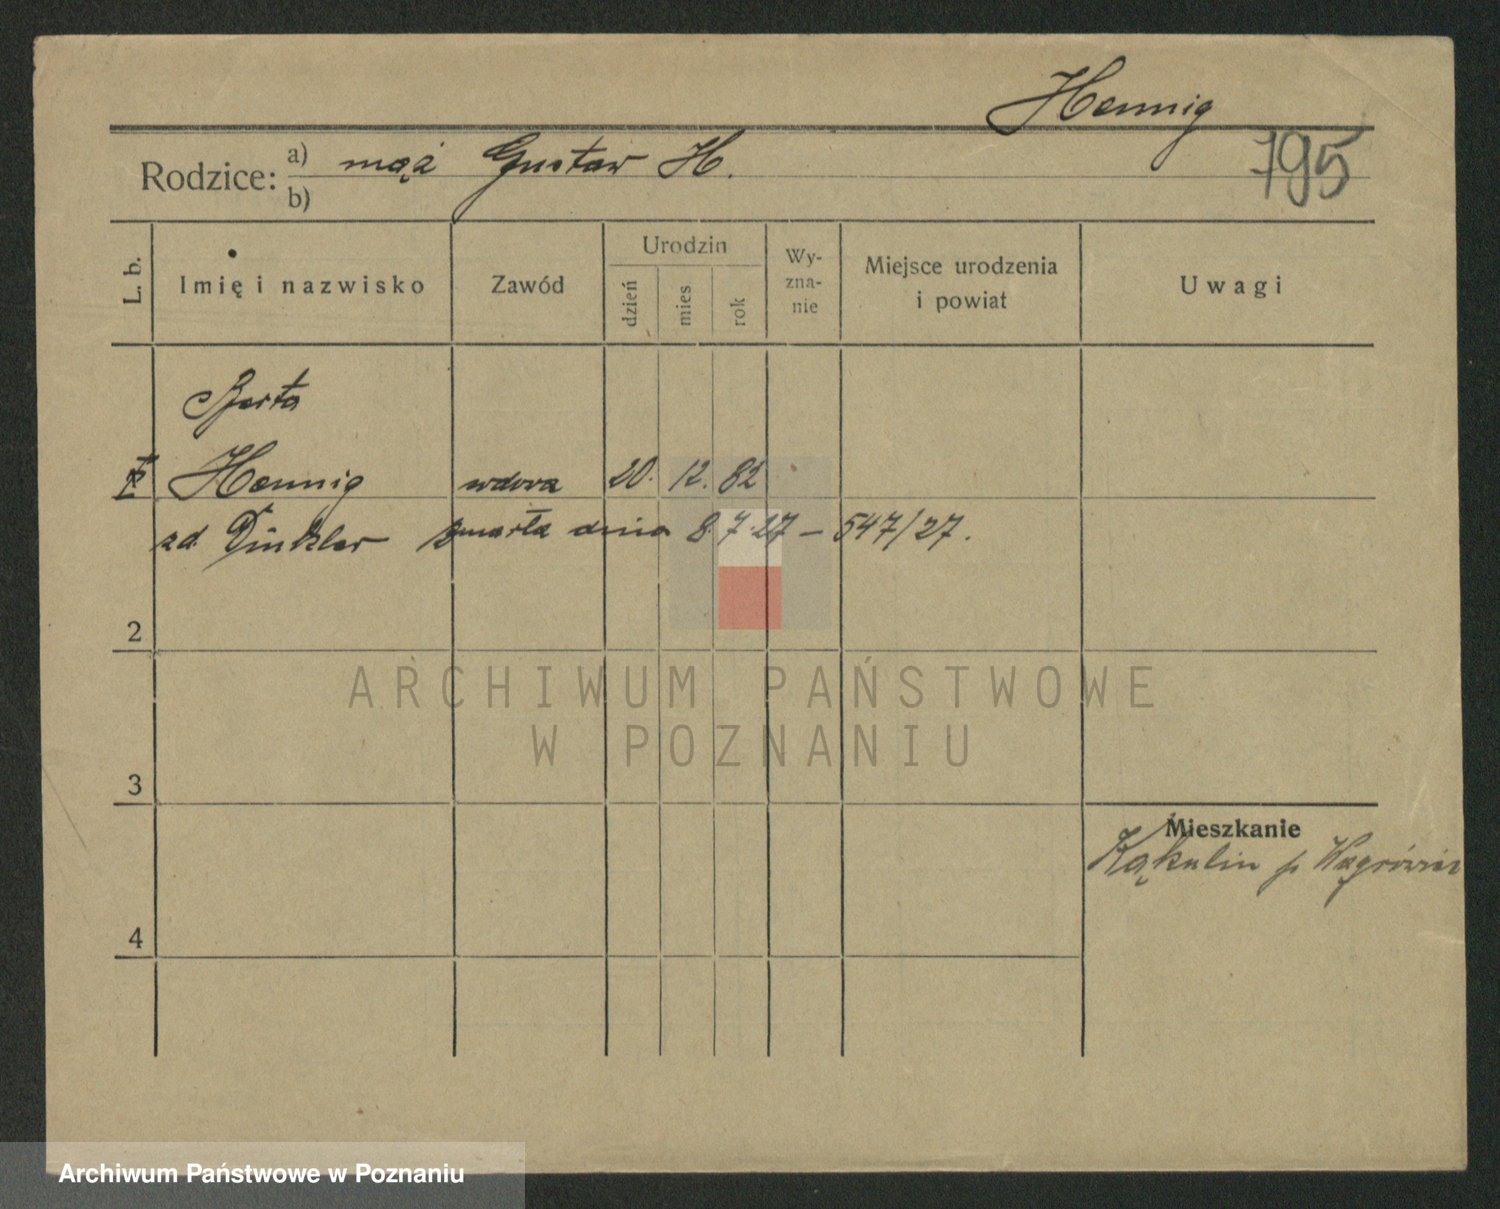 Hennig
795
Rodzice: a) mąż Gustaw H.
b)
L. b. Imię i nazwisko Zawód Urodzin dzień mies rok Wy-zna-nie Miejsce urodzenia i powiat Uwagi
Berta
Hennig wdowa 20. 12. 82
zd. Dinkler zmarła dnia 8.7.27 – 547/27.
2
ARCHIWUM PAŃSTWOWE
W POZNANIU
3
Mieszkanie
Kąkulin p Wągrówiec
4
Archiwum Państwowe w Poznaniu